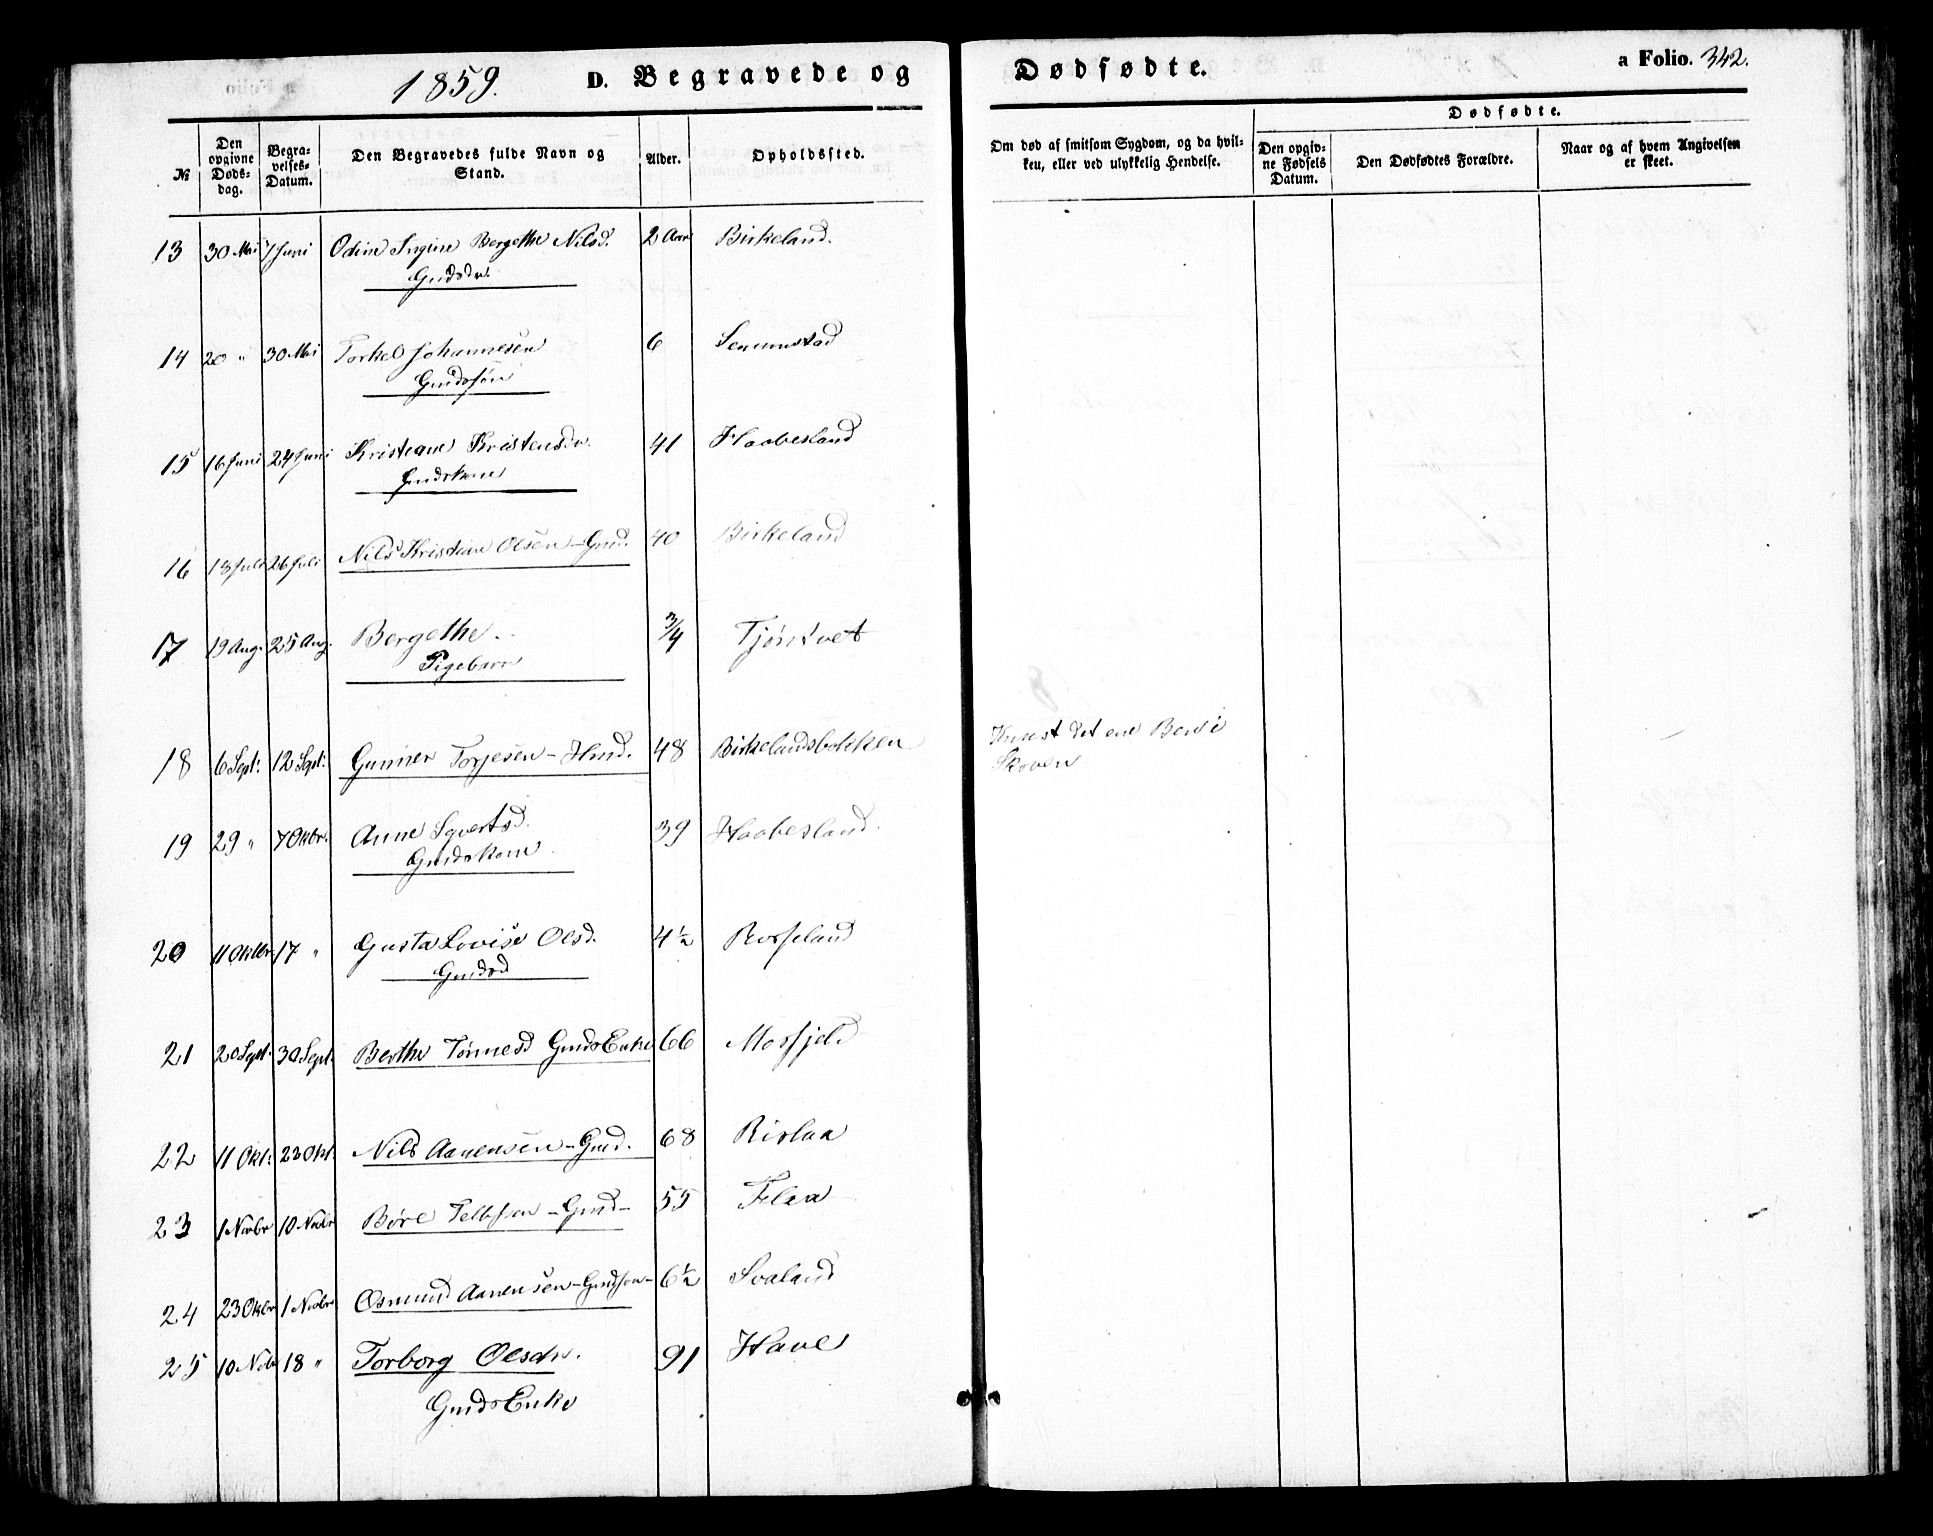 1859.
D. Begravede og
Dødfødte.
a Folio. 342.
№
Den opgivne Døds-dag.
Begra-velses-Datum.
Den Begravedes fulde Navn og Stand.
Alder.
Opholdssted.
Om død af smitsom Sygdom, og da hvil-ken, eller ved ulykkelig Hendelse.
Dødfødte.
Den opgiv-ne Fødsels Datum.
Den Dødfødtes Forældre.
Naar og af hvem Angivelsen er skeet.
13 30 Mai 7 Juni Odine Ingine Bergethe Nilsd. 2 Aar Birkeland.
Gmdsdr.
14 20 " 30 Mai Torkel Johannesen 6 Senumstad
Gmdssøn
15 16 Juni 24 Juni Kristiane Kristensdr. 41 Haabesland
Gmdskone
16 18 Juli 26 Juli Nils Kristian Olsen - Gmd. 40 Birkeland
17 19 Aug. 25 Aug. Bergethe 3/4 Tjøntvet
Pigebarn
18 6 Sept. 12 Sept. Gunner Torjesen - Hmd. 48 Birkelandsbakken Knust det ene Been i
Skoven
19 29 " 7 Oktbr. Anne Syvertsd. 39 Haabesland.
Gmdskone
20 11 Oktbr 17 " Gusta Lovise Olsd. 4½ Rosseland
Gmdsd
21 20 Sept. 30 Sept. Berthe Tønnesd GmdsEnke 66 Mosfjeld
22 11 Okt. 23 Okt. Nils Aanensen - Gmd. 68 Rislaa
23 1 Novbr 10 Novbr Børe Tellefsen - Gmd - 55 Flaa
24 23 Oktbr 1 Novbr Osmund Aanensen - Gmdsøn - 6½ Svaland
25 10 Nov 18 " Torborg Olsdr. 91 Have
GmdsEnke